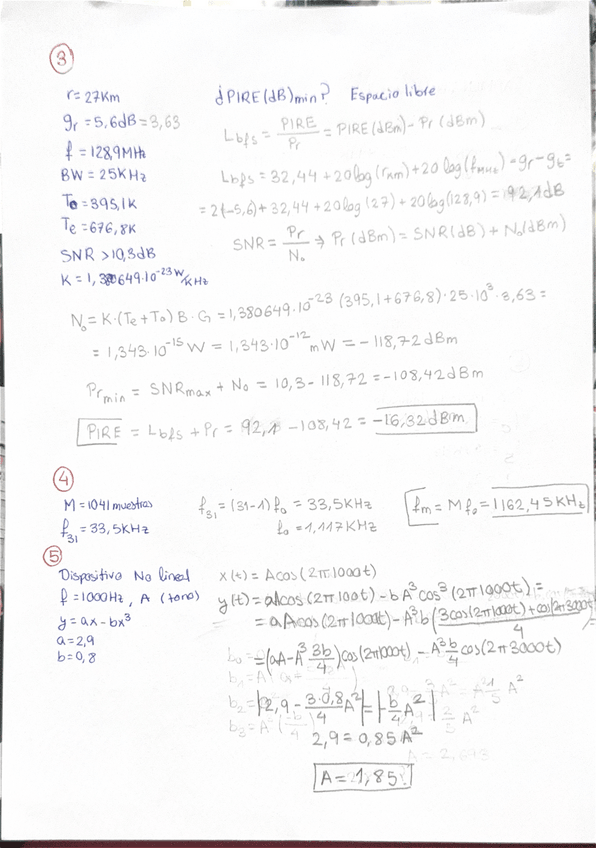 3
r = 27Km
gr = 5,6dB = 3,63
f = 128,9MHz
BW = 25KHz
To = 395,1K
Te = 676,8K
SNR > 10,3dB
K = 1,380649·10^-23 W/KHz
¿PIRE(dB)min? Espacio libre
Lbfs = PIRE/Pr = PIRE(dBm) - Pr(dBm)
Lbfs = 32,44 + 20log(rkm) + 20log(fMHz) - gr - gt =
= 2(-5,6) + 32,44 + 20log(27) + 20log(128,9) = 92,1dB
SNR = Pr/No ⇒ Pr(dBm) = SNR(dB) + No(dBm)
No = K·(Te+To)B·G = 1,380649·10^-23 (395,1+676,8)·25·10^3·3,63 =
= 1,343·10^-15 W = 1,343·10^-12 mW = -118,72dBm
Prmin = SNRmax + No = 10,3 - 118,72 = -108,42dBm
PIRE = Lbfs + Pr = 92,1 - 108,42 = -16,32dBm
4
M = 1041 muestras
f31 = 33,5KHz
f31 = (31-1)fo = 33,5KHz
fo = 1,117KHz
fm = Mfo = 1162,45KHz
5
Dispositivo No lineal
f = 1000Hz, A (tono)
y = ax - bx^3
a = 2,9
b = 0,8
x(t) = Acos(2π1000t)
y(t) = aAcos(2π100t) - bA^3cos^3(2π1000t) =
= aAcos(2π1000t) - A^3b(3cos(2π1000t) + cos(2π3000t)/4) =
= (aA - A^3 3b/4)cos(2π1000t) - A^3b/4 cos(2π3000t)
|2,9 - 3·0,8/4 A^2| = |-b/4 A^2|
2,9 = 0,85A^2
A = 1,85